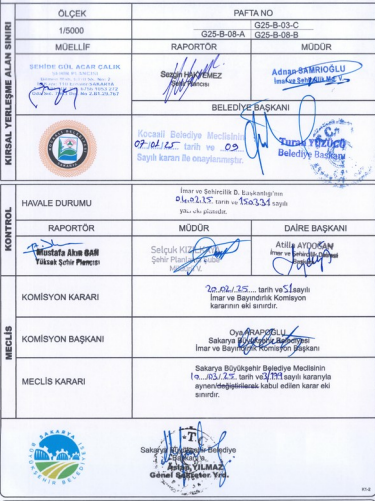 KIRSAL YERLEŞME ALAN SINIRI
ÖLÇEK
PAFTA NO
1/5000
G25-B-03-C
G25-B-08-A G25-B-08-B
MÜELLİF
RAPORTÖR
MÜDÜR
ŞEHİDE GÜL ACAR ÇALIK
Sezgin HAKYEMEZ
Şehir Plancısı
Adnan SAMRIOĞLU
İmar ve Şehircilik Md. V.
BELEDİYE BAŞKANI
Kocaali Belediye Meclisinin
07.01.25 tarih ve 09
Sayılı kararı ile onaylanmıştır.
Turan YÜZÜCÜ
Belediye Başkanı
T.C.
KONTROL
HAVALE DURUMU
İmar ve Şehircilik D. Başkanlığı'nın
04.02.25 tarih ve 150331 sayılı
yazı
RAPORTÖR
MÜDÜR
DAİRE BAŞKANI
Mustafa Akın
Yüksek Şehir Plancısı
Selçuk
Şehir Planlama Şube
Müdürü V.
Atilla AYDOĞAN
İmar ve Şehircilik Dairesi
MECLİS
KOMİSYON KARARI
20.02.25 tarih ve 51 sayılı
İmar ve Bayındırlık Komisyon
kararının eki sınırdır.
KOMİSYON BAŞKANI
Oya ARAPOĞLU
Sakarya Büyükşehir Belediyesi
İmar ve Bayındırlık Komisyon Başkanı
MECLİS KARARI
Sakarya Büyükşehir Belediye Meclisinin
10.../03/.25. tarih ve sayılı kararıyla
aynen/değiştirilerek kabul edilen karar eki
sınırdır.
SAKARYA
BÜYÜKŞEHİR BELEDİYESİ
T.
Sakarya Büyükşehir Belediye
Başkanı a.
Aslan YILMAZ
Genel Sekreter Yrd.